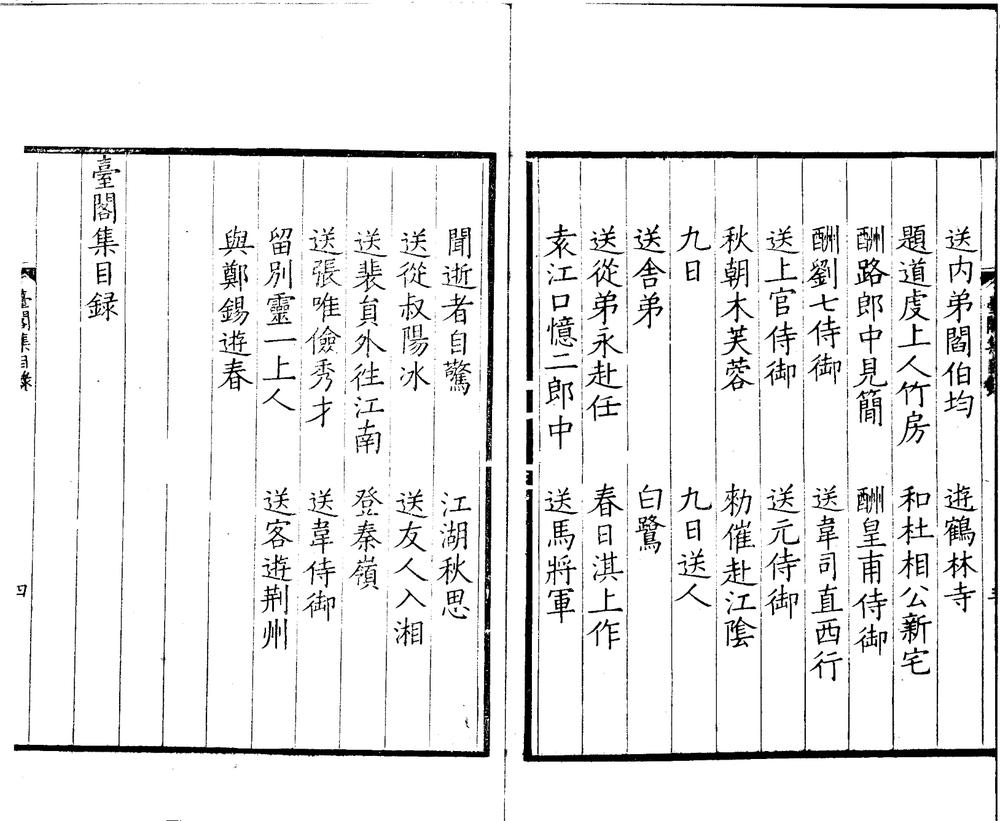 送内弟閻伯均　遊鶴林寺
題道虔上人竹房　和杜相公新宅
酬路郎中見簡　酬皇甫侍御
酬劉七侍御　送韋司直西行
送上官侍御　送元侍御
秋朝木芙蓉　勑催赴江隂
九日　九日送人
送舍弟　白鷺
送從弟永赴任　春日淇上作
袁江口憶二郎中　送馬將軍
聞逝者自驚　江湖秋思
送從叔陽冰　送友人入湘
送裴貟外往江南　登秦嶺
送張唯儉秀才　送韋侍御
留別靈一上人　送客遊荆州
與鄭錫遊春
臺閣集目録
臺閣集目錄
四